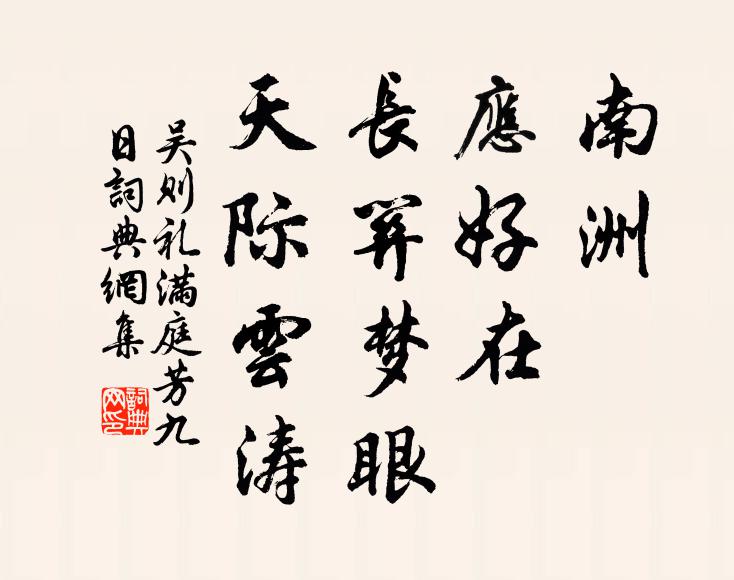 南洲
應好在
長梦眼
天际雲涛
吴则礼满庭芳九
日詞典網集
詞典
网印